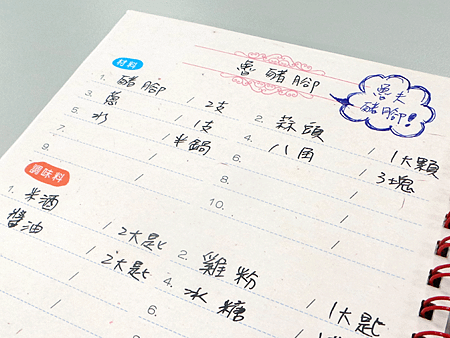 魯豬腳
魯夫
豬腳!
材料
1. 豬腳 / 2支
2. 蒜頭 / 1大顆
3. 蔥 / 1支
4. 八角 / 3塊
5. 水 / 半鍋
6. /
7. /
8. /
9. /
10. /
調味料
1. 米酒 / 2大匙
2. 雞粉 / 1大匙
醬油 / 2大匙
4. 氷糖 /
6.